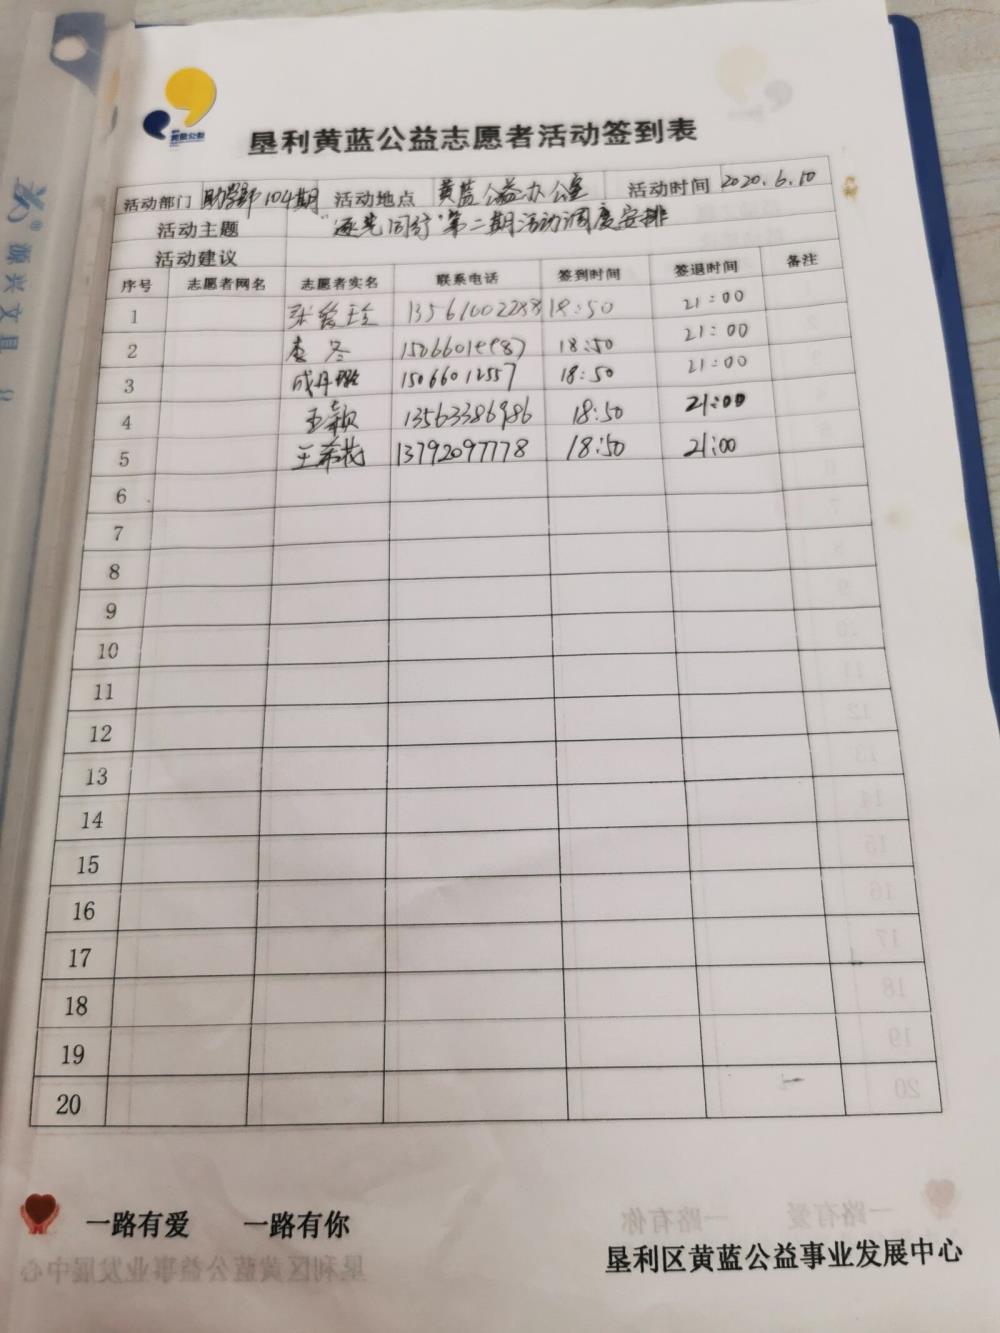 黄蓝公益
垦利黄蓝公益志愿者活动签到表
活动部门 助学部104期 活动地点 黄蓝公益办公室 活动时间 2020.6.10
活动主题 "逐光同行"第二期活动调度安排
活动建议
序号 志愿者网名 志愿者实名 联系电话 签到时间 签退时间 备注
1 13561002288 18:50 21:00
2 18:50 21:00
3 成丹璐 15066012557 18:50 21:00
4 王颖 13563386986 18:50 21:00
5 13792097778 18:50 21:00
6
7
8
9
10
11
12
13
14
15
16
17
18
19
20
一路有爱 一路有你
垦利区黄蓝公益事业发展中心
源兴文具